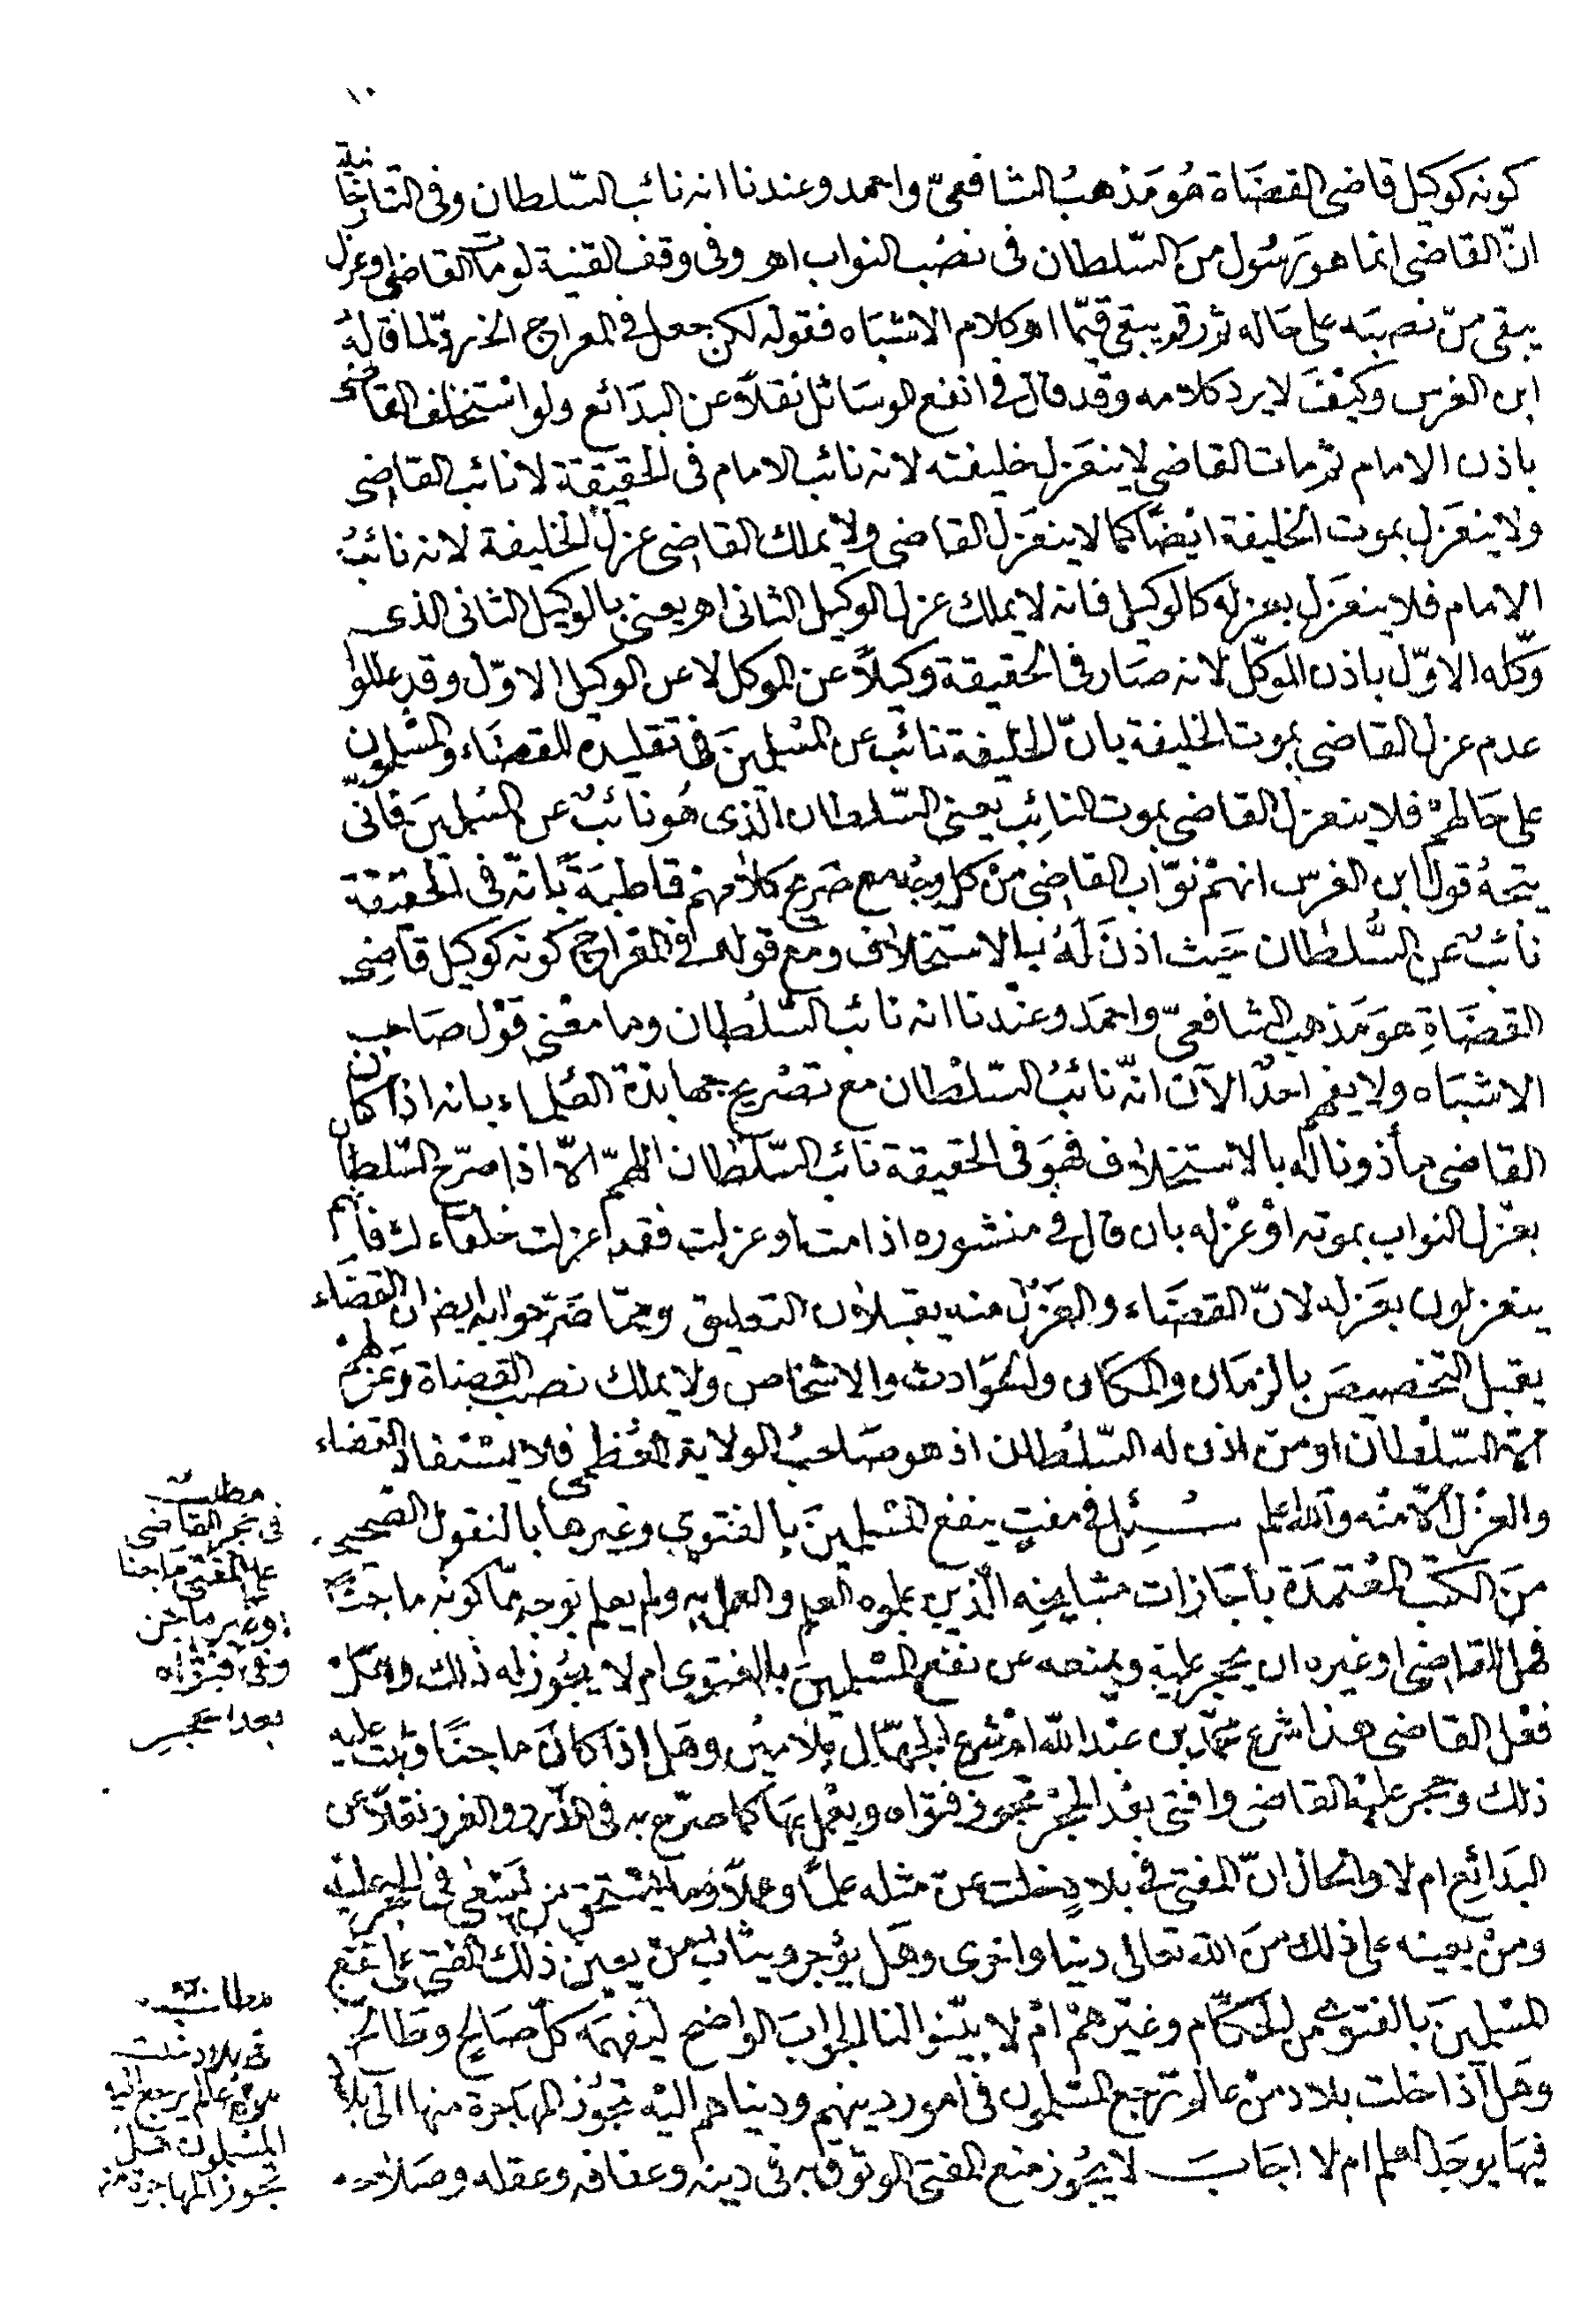 ١٠
كونه كوكيل قاضى القضاة هو مذهب الشافعىّ واحمد وعندنا انه نائب السّلطان وفى التتارخانية
انّ القاضى انما هو رسول من السّلطان فى نصب النواب اهـ وفى وقف القنية لو مات القاضى او عزل
يبقى من نصبه على حاله ثم رقم يبقى قيّما اهـ كلام الاشباه فقوله لكن جعل فى المعراج الخ ردّ لما قاله
ابن الغرس وكيف لا يرد كلامه وقد قال فى انفع الوسائل نقلا عن البدائع ولو استخلف القاضى
باذن الامام ثم مات القاضى لا ينعزل خليفته لانه نائب الامام فى الحقيقة لا نائب القاضى
ولا ينعزل بموت الخليفة ايضا كما لا ينعزل القاضى ولا يملك القاضى عزل الخليفة لانه نائب
الامام فلا ينعزل بعزله كالوكيل فانه لا يملك عزل الوكيل الثانى اهـ يعنى بالوكيل الثانى الذى
وكّله الاوّل باذن الموكّل لانه صار فى الحقيقة وكيلاً عن الموكل لا عن الوكيل الاوّل وقد عللوا
عدم عزل القاضى بموت الخليفة بانّ الخليفة نائب عن المسلمين فى تقليده للقضاء والمسلمون
على حالهم فلا ينعزل القاضى بموت النائب يعنى السّلطان الّذى هو نائب عن المسلمين فانّى
يتجه قول ابن الغرس انهم نوّاب القاضى من كل وجه مع صريح كلامهم قاطبة بانّه فى الحقيقة
نائب عن السّلطان حيث اذن له بالاستخلاف ومع قوله فى المعراج كونه كوكيل قاضى
القضاة هو مذهب الشافعىّ واحمد وعندنا انه نائب السّلطان وما معنى قول صاحب
الاشباه ولا يفهم احد الآن انّه نائب السّلطان مع تصريح جهابذة العلماء بانه اذا كان
القاضى مأذونا له بالاستخلاف فهو فى الحقيقة نائب السّلطان اللهمّ الّا اذا صرّح السّلطان
بعزل النواب بموته او عزله بان قال فى منشوره اذا مت او عزلت فقد عزلت خلفاءك فانهم
ينعزلون بعزله لانّ القضاء والعزل منه يقبلان التعليق وممّا صرّحوا به ايضا ان القضاء
يقبل التخصيص بالزمان والمكان والحوادث والاشخاص ولا يملك نصب القضاة وعزلهم
الّا السّلطان او من اذن له السّلطان اذ هو صاحب الولاية العظمى فلا يستفاد القضاء
والعزل الّا منه والله اعلم سئل فى مفت ينفع المسلمين بالفتوى وغيرها بالنقول الصحيحة
من الكتب المعتمدة باجازات مشايخه الّذين علموه العلم والعمل به ولم يعلم بوجه مّا كونه ماجناً
فهل للقاضى او غيره ان يحجر عليه ويمنعه عن نفع المسلمين بالفتوى ام لا يجوز له ذلك وهل
فعل القاضى هذا شرع محمّد بن عبد الله او شرع الجهّال بلا مين وهل اذا كان ماجنًا وثبت عليه
ذلك وحجر عليه القاضى وافتى بعد الحجر تجوز فتواه ويعمل بها كما صرّح به فى الدّرر والغرر نقلاً عن
البدائع ام لا والحال انّ المفتى فى بلاد خلت عن مثله علمًا وعملاً وما يستحق من يسعى فى الحجر عليه
ومن يعينه على ذلك من الله تعالى دينا واخرى وهل يؤجر ويثاب من يعين ذلك المفتى على نفع
المسلمين بالفتوى من الحكّام وغيرهم ام لا بيّنوا لنا الجواب الواضح ليفهمه كلّ صالح وطالح
وهل اذا خلت بلاد من عالم ترجع المسلمون فى امور دينهم ودنياهم اليه تجوز المهاجرة منها الى بلاد
فيها يوجد العلم ام لا اجاب لا يجوز منع المفتى الموثوق به فى دينه وعفافه وعقله وصلاحه
مطلب
فى حجر القاضى
على المفتى ماجنا
او غير ماجن
وفى فتواه
بعد الحجر
مطلب
فى بلاد خلت
من عالم يرجع اليه
المسلمون هل
تجوز المهاجرة منه